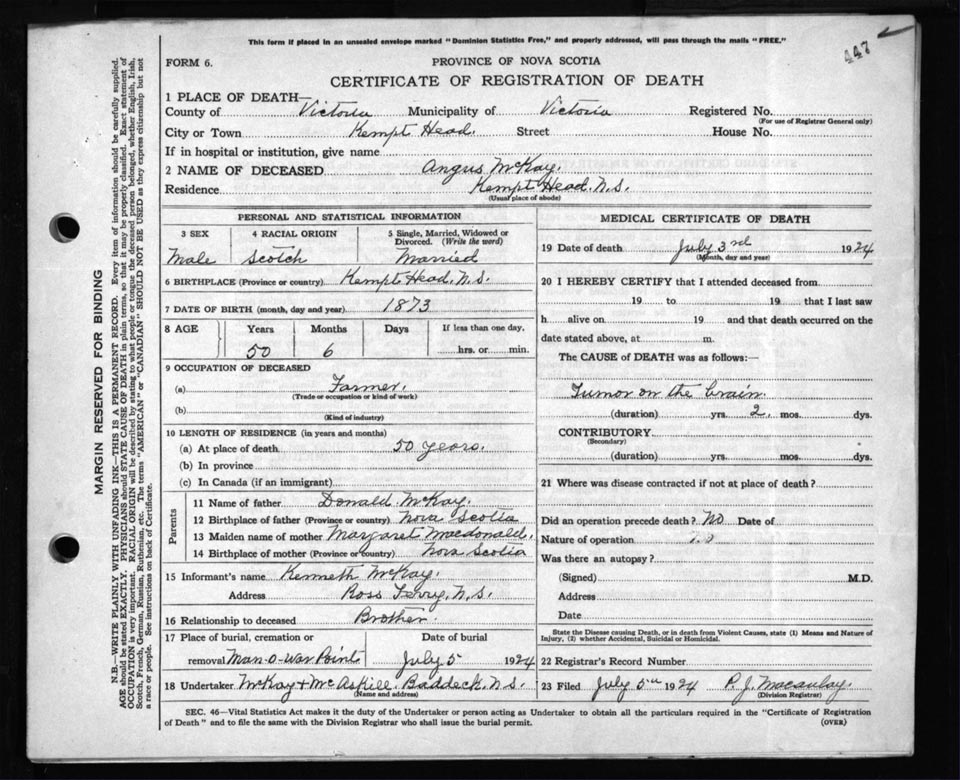 This form if placed in an unsealed envelope marked "Dominion Statistics Free," and properly addressed, will pass through the mails "FREE."
447
FORM 6.
PROVINCE OF NOVA SCOTIA
CERTIFICATE OF REGISTRATION OF DEATH
1 PLACE OF DEATH—
County of Victoria Municipality of Victoria Registered No.
(For use of Registrar General only)
City or Town Kempt Head Street House No.
If in hospital or institution, give name
2 NAME OF DECEASED Angus McKay.
Residence Kempt Head, N.S.
(Usual place of abode)
PERSONAL AND STATISTICAL INFORMATION
3 SEX
4 RACIAL ORIGIN
5 Single, Married, Widowed or
Divorced. (Write the word)
Male Scotch Married
6 BIRTHPLACE (Province or country) Kempt Head, N.S.
7 DATE OF BIRTH (month, day and year) 1873
8 AGE Years Months Days If less than one day,
50 6 hrs. or min.
9 OCCUPATION OF DECEASED
(a) Farmer.
(Trade or occupation or kind of work)
(b)
(Kind of industry)
10 LENGTH OF RESIDENCE (in years and months)
(a) At place of death 50 years.
(b) In province
(c) In Canada (if an immigrant)
Parents
11 Name of father Donald McKay.
12 Birthplace of father (Province or country) Nova Scotia
13 Maiden name of mother Margaret Macdonald.
14 Birthplace of mother (Province or country) Nova Scotia
15 Informant's name Kenneth McKay.
Address Ross Ferry, N.S.
16 Relationship to deceased Brother.
17 Place of burial, cremation or Date of burial
removal Man-o-War Point July 5 1924
18 Undertaker McKay & McAskill, Baddeck, N.S.
(Name and address)
MEDICAL CERTIFICATE OF DEATH
19 Date of death July 3rd 1924
(Month, day and year)
20 I HEREBY CERTIFY that I attended deceased from
19 to 19 that I last saw
h alive on 19 and that death occurred on the
date stated above, at m.
The CAUSE of DEATH was as follows:—
Tumor on the brain.
(duration) yrs. 2. mos. dys.
CONTRIBUTORY
(Secondary)
(duration) yrs. mos. dys.
21 Where was disease contracted if not at place of death?
Did an operation precede death? No Date of
Nature of operation
Was there an autopsy?
(Signed) M.D.
Address
Date
State the Disease causing Death, or in death from Violent Causes, state (1) Means and Nature of
Injury, (2) whether Accidental, Suicidal or Homicidal.
22 Registrar's Record Number
23 Filed July 5th 1924 P.J. Macaulay.
(Division Registrar)
SEC. 46—Vital Statistics Act makes it the duty of the Undertaker or person acting as Undertaker to obtain all the particulars required in the "Certificate of Registration
of Death" and to file the same with the Division Registrar who shall issue the burial permit. (OVER)
MARGIN RESERVED FOR BINDING
N.B.—WRITE PLAINLY WITH UNFADING INK—THIS IS A PERMANENT RECORD. Every item of information should be carefully supplied.
AGE should be stated EXACTLY. PHYSICIANS should STATE CAUSE OF DEATH in plain terms, so that it may be properly classified. Exact statement of
OCCUPATION is very important. RACIAL ORIGIN will be described by stating to what people or tongue the deceased person belonged, whether English, Irish,
Scotch, French, German, Russian, Ruthenian, etc. The terms "AMERICAN" or "CANADIAN" SHOULD NOT BE USED as they express citizenship but not
a race or people. See instructions on back of Certificate.